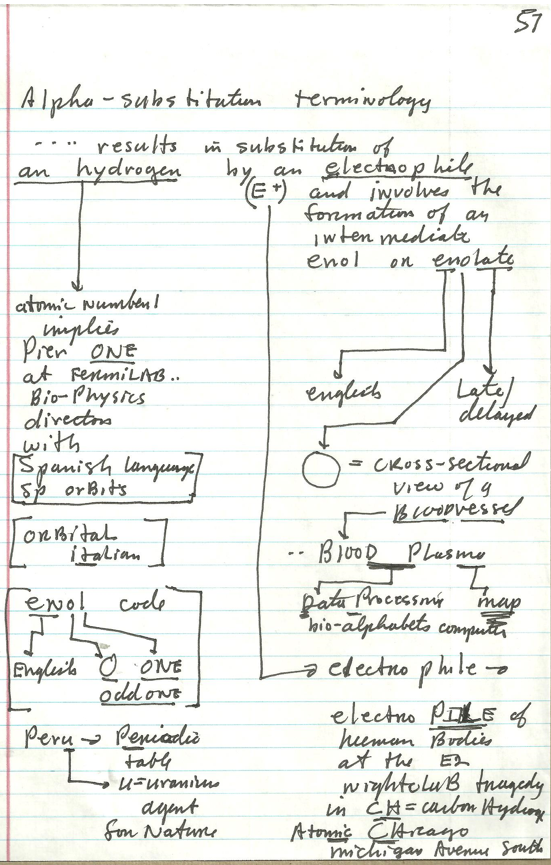 57
Alpha-substitution terminology
.... results in substitution of
an hydrogen by an electrophile
(E+) and involves the
formation of an
intermediate
enol or enolate
atomic number 1
implies
Pier ONE
at FermiLAB..
Bio-Physics
directors
with
Spanish language
Sp orBits
orBital
italian
enol code
English O ONE
odd ONE
Peru → Periodic
table
u=uranium
agent
for Nature
english Late/
delayed
= cross-sectional
view of a
Bloodvessel
.. BlooD Plasma
Data Processing map
bio-alphabets computer
→ electrophile →
electro PILE of
human Bodies
at the E2
nightcluB tragedy
in CH=carbon Hydrogen
Atomic CHicago
michigan Avenue South